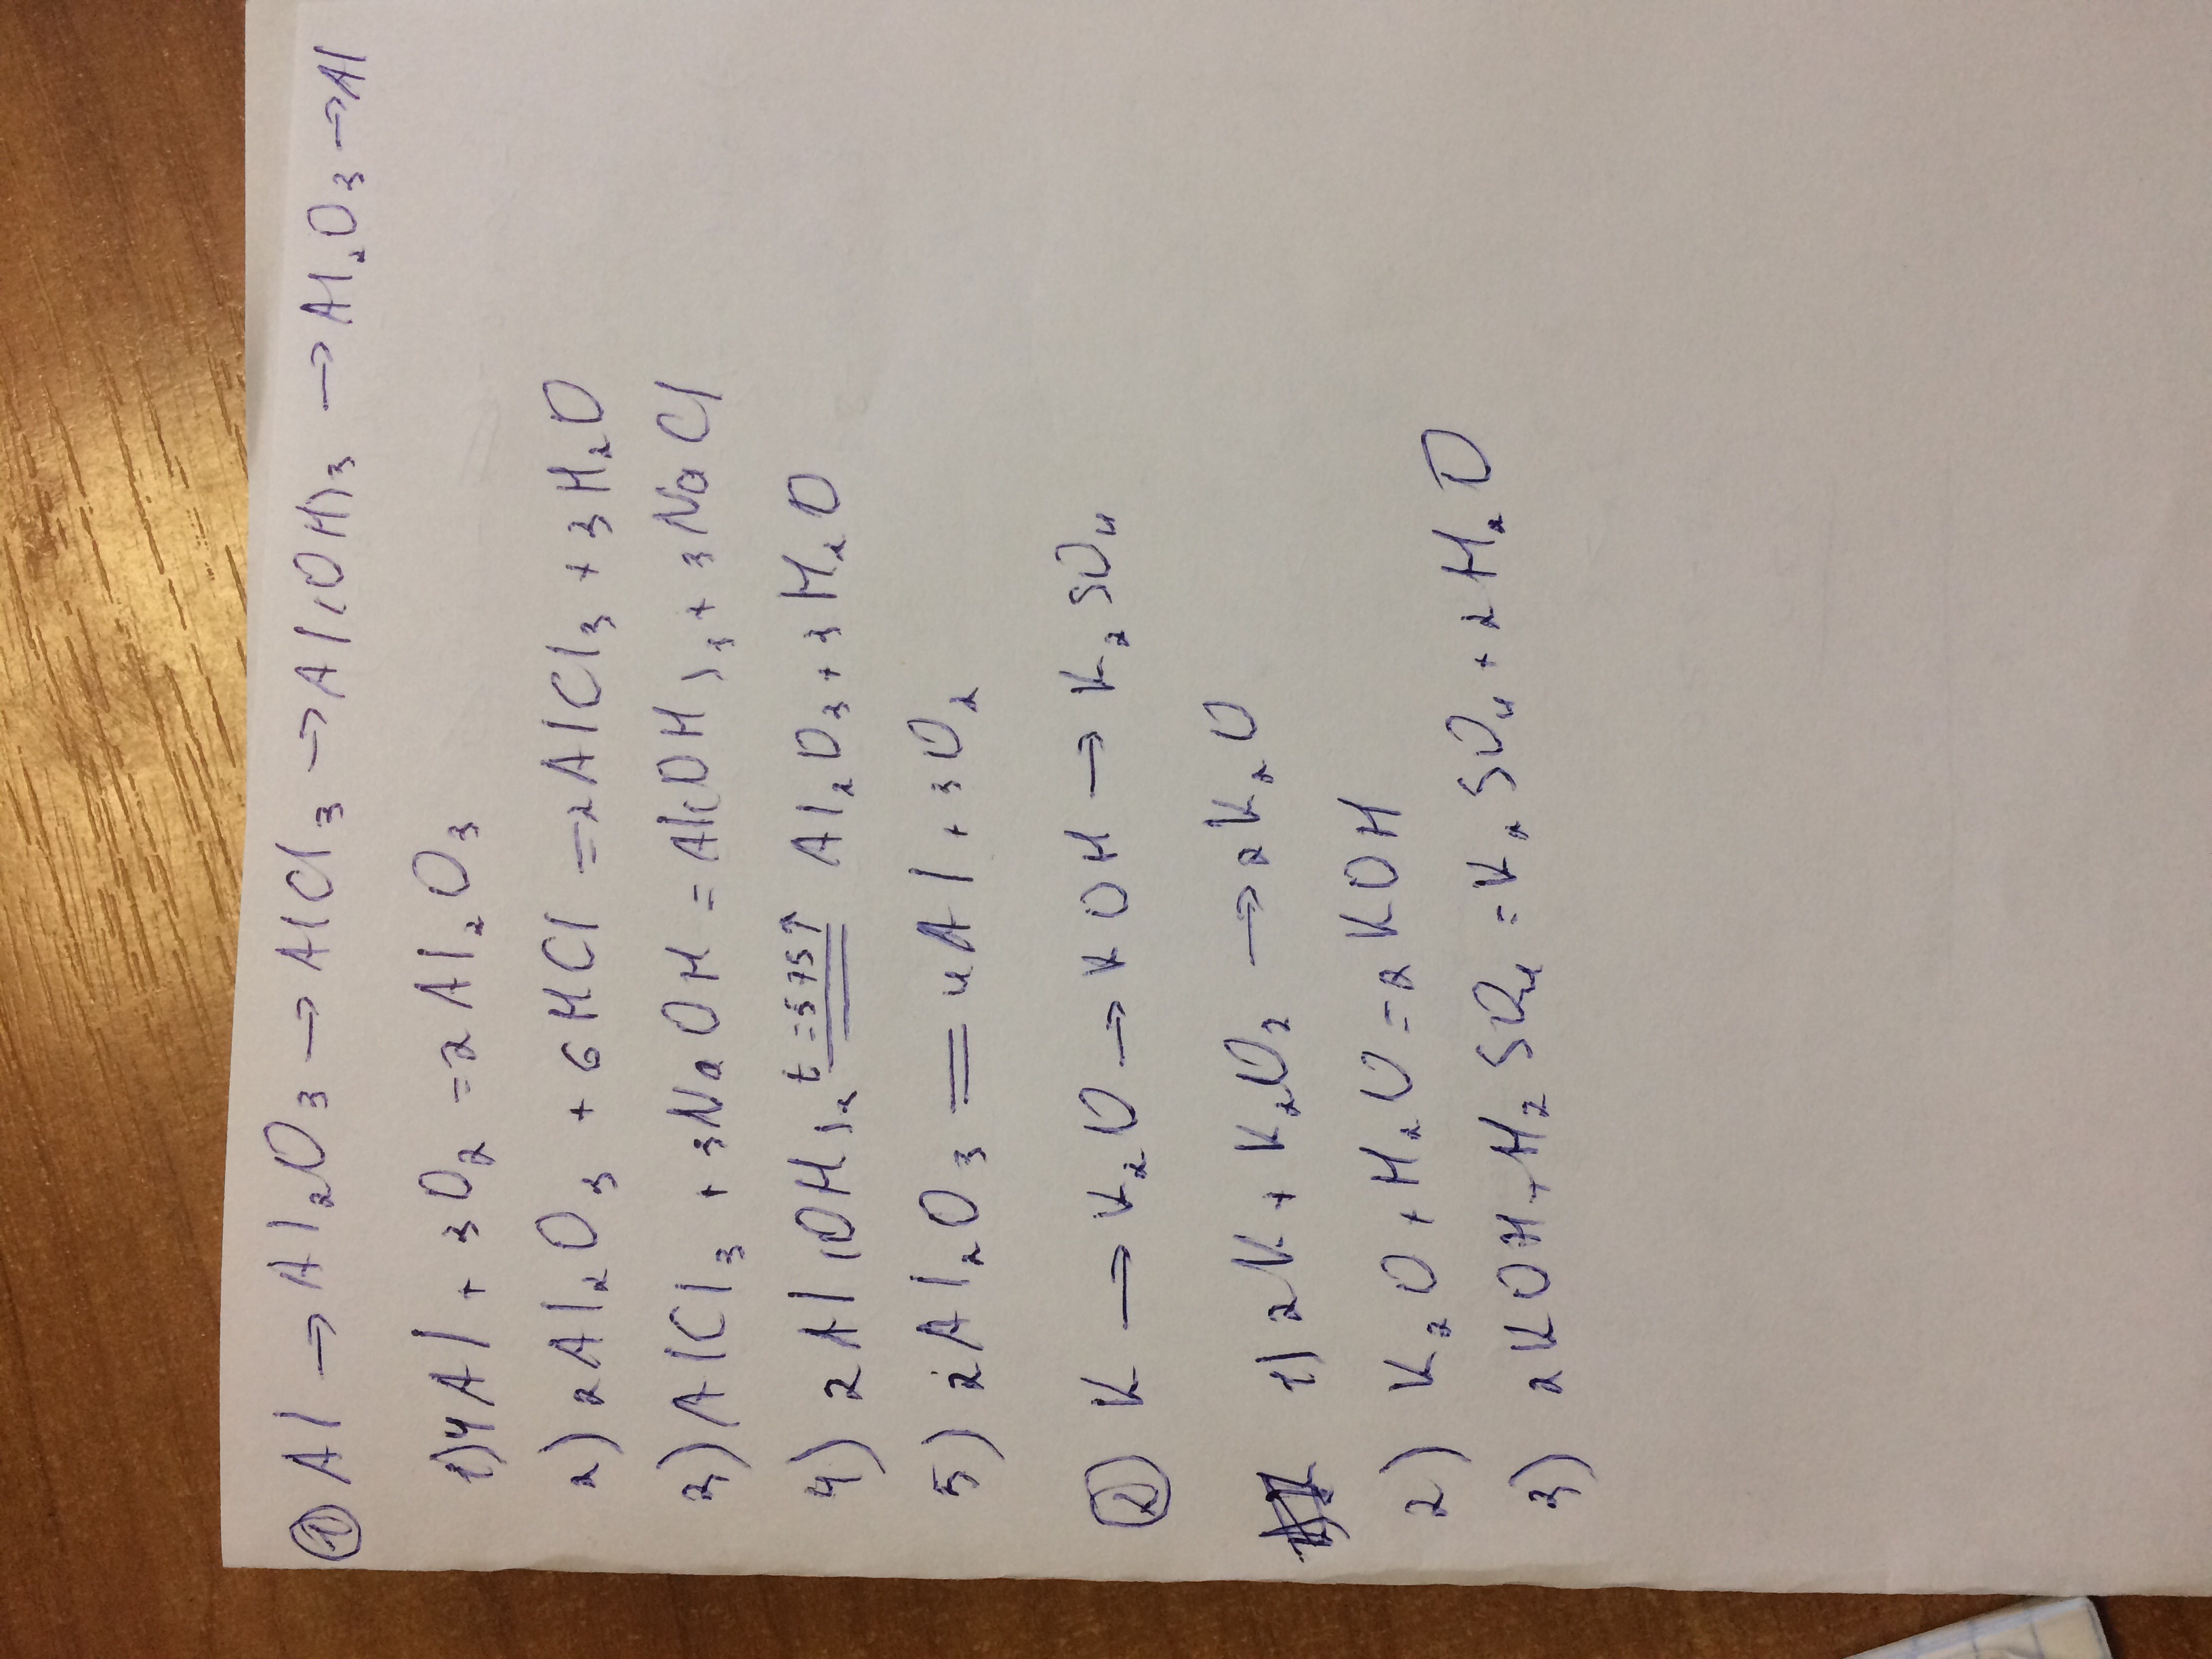 ① Al → Al₂O₃ → AlCl₃ → Al(OH)₃ → Al₂O₃ → Al
1) 4Al + 3O₂ = 2Al₂O₃
2) 2Al₂O₃ + 6HCl = 2AlCl₃ + 3H₂O
3) AlCl₃ + 3NaOH = Al(OH)₃ + 3NaCl
4) 2Al(OH)₂ t=575↑ Al₂O₃ + 3H₂O
5) 2Al₂O₃ = 4Al + 3O₂
② K → K₂O → KOH → K₂SO₄
1) 2K + K₂O₂ → 2K₂O
2) K₂O + H₂O = 2KOH
3) 2KOH + H₂SO₄ = K₂SO₄ + 2H₂O